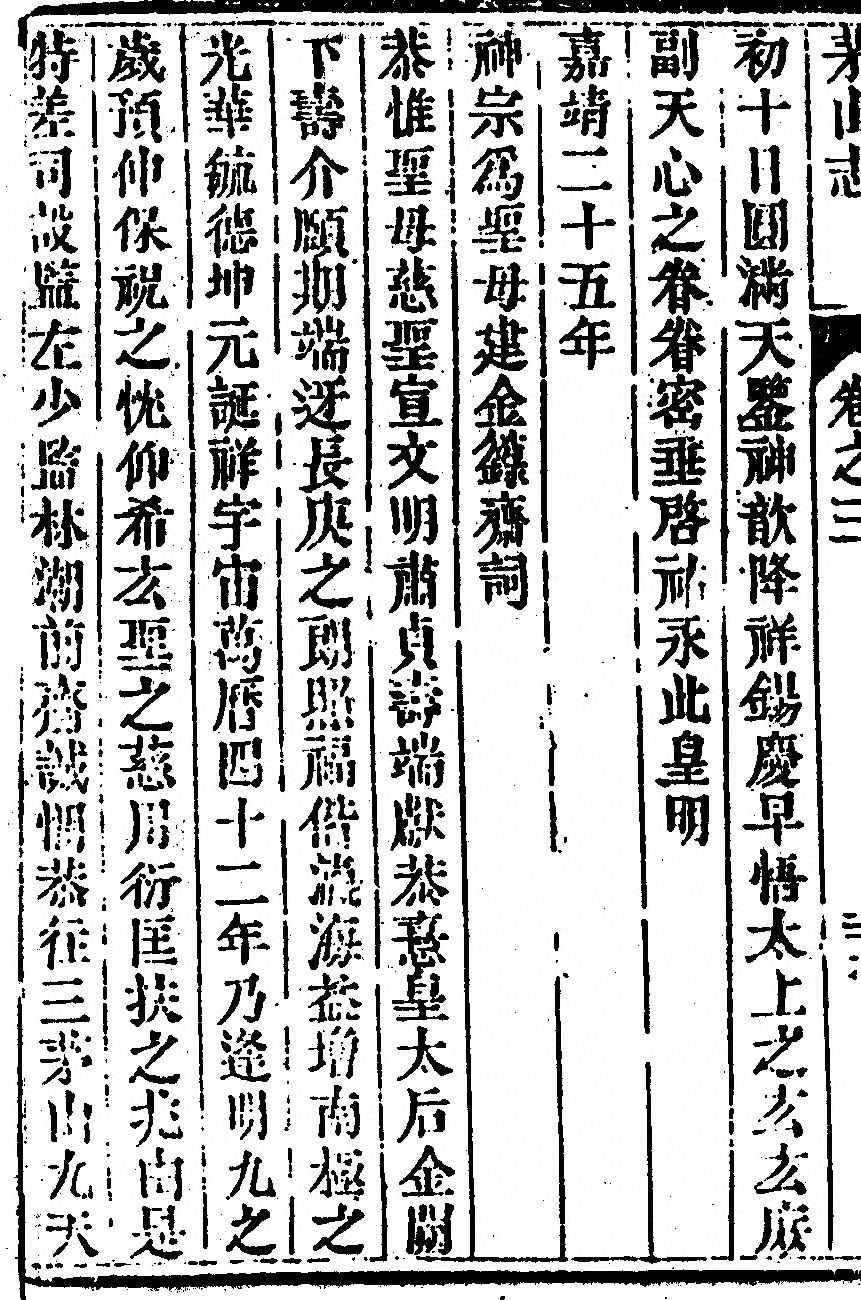 茅山志 卷之三
初十日圓滿天鑒神歆降祥錫慶早悟太上之玄玄庶
副天心之眷眷密垂啓祐永此皇明
嘉靖二十五年
神宗爲聖母建金籙齋詞
恭惟聖母慈聖宣文明肅貞壽端獻恭憙皇太后金闕
下壽介頤期端迓長庚之朗照福偕瀛海益增南極之
光華毓德坤元誕祥宇宙萬曆四十二年乃逢明九之
歲預伸保祝之忱仰希玄聖之慈用衍匡扶之兆由是
特差司設監左少監林潮前齎誠悃恭往三茅山九天